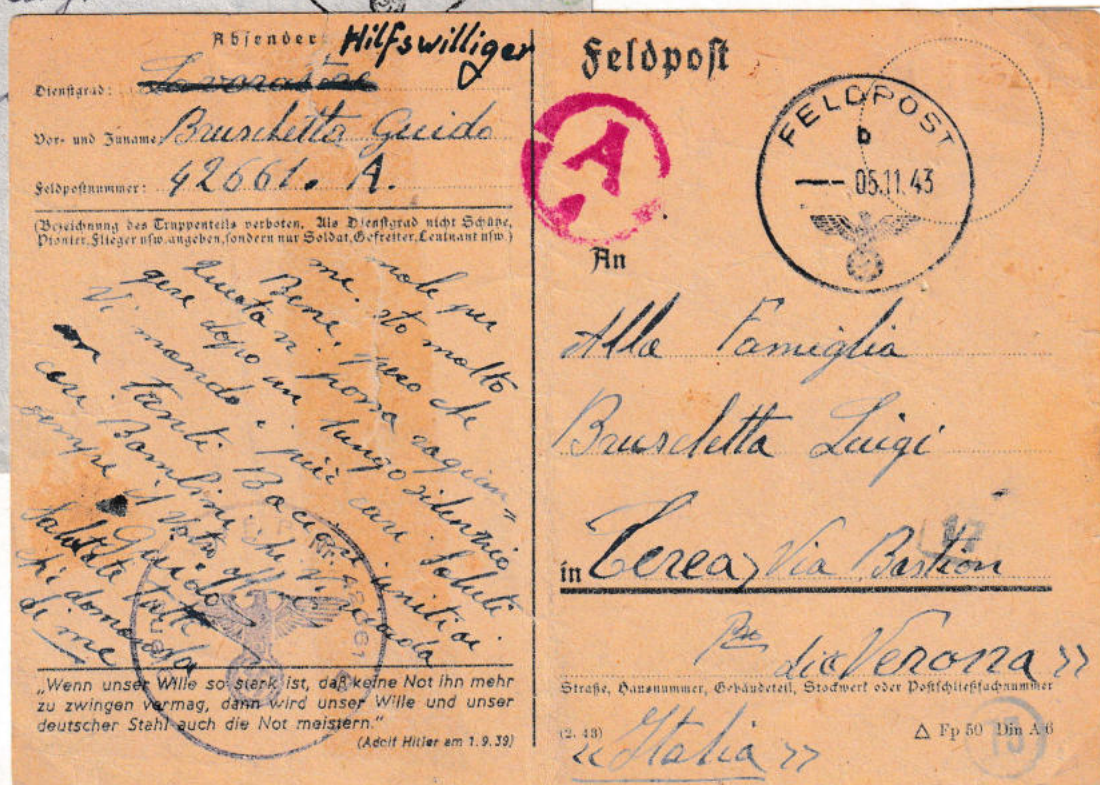 Absender:
Hilfswilliger
Dienstgrad:
Vor- und Zuname: Bruschetta Guido
Feldpostnummer: 42661. A.
(Bezeichnung des Truppenteils verboten. Als Dienstgrad nicht Schütze,
Pionier, Flieger usw. angeben, sondern nur Soldat, Gefreiter, Leutnant usw.)
male per
me. sto molto
Bene, spero che
questa vi possa raggiun=
gere dopo un lungo silenzio
Vi mando i più cari saluti
Tanti Bacioni uniti ai
cari Bambini, chi vi ricorda
sempre il Vostro
Guido
Salutate tutti
chi domanda
di me
„Wenn unser Wille so stark ist, daß keine Not ihn mehr
zu zwingen vermag, dann wird unser Wille und unser
deutscher Stahl auch die Not meistern."
(Adolf Hitler am 1.9.39)
Feldpost
A
FELDPOST
b
05.11.43
An
Alla Famiglia
Bruschetta Luigi
17
in Cerea, Via Bastion
di Verona »
Straße, Hausnummer, Gebäudeteil, Stockwerk oder Postschließfachnummer
(2. 43)
« Italia »
△ Fp 50 Din A 6
15